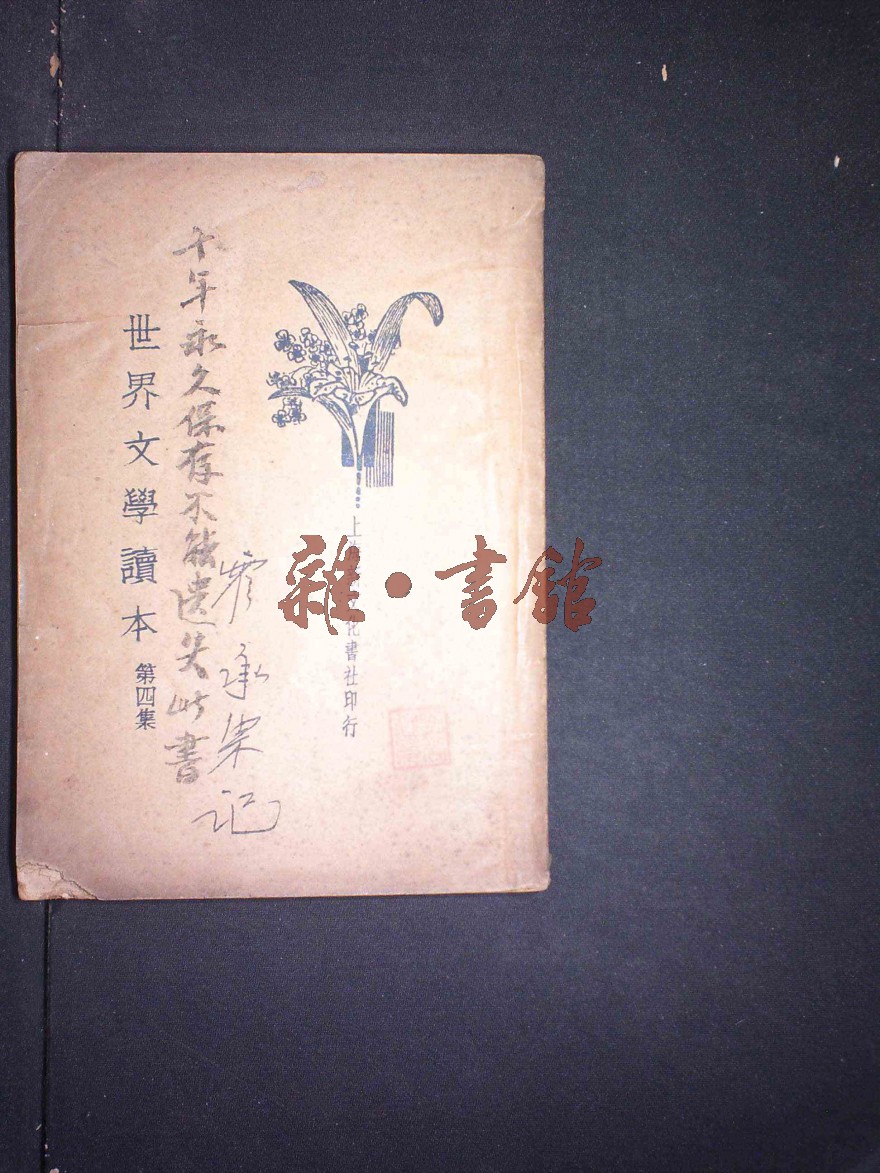 上
化書社印行
十年永久保存不能遺失此書
承
记
世界文學讀本 第四集
雜·書館